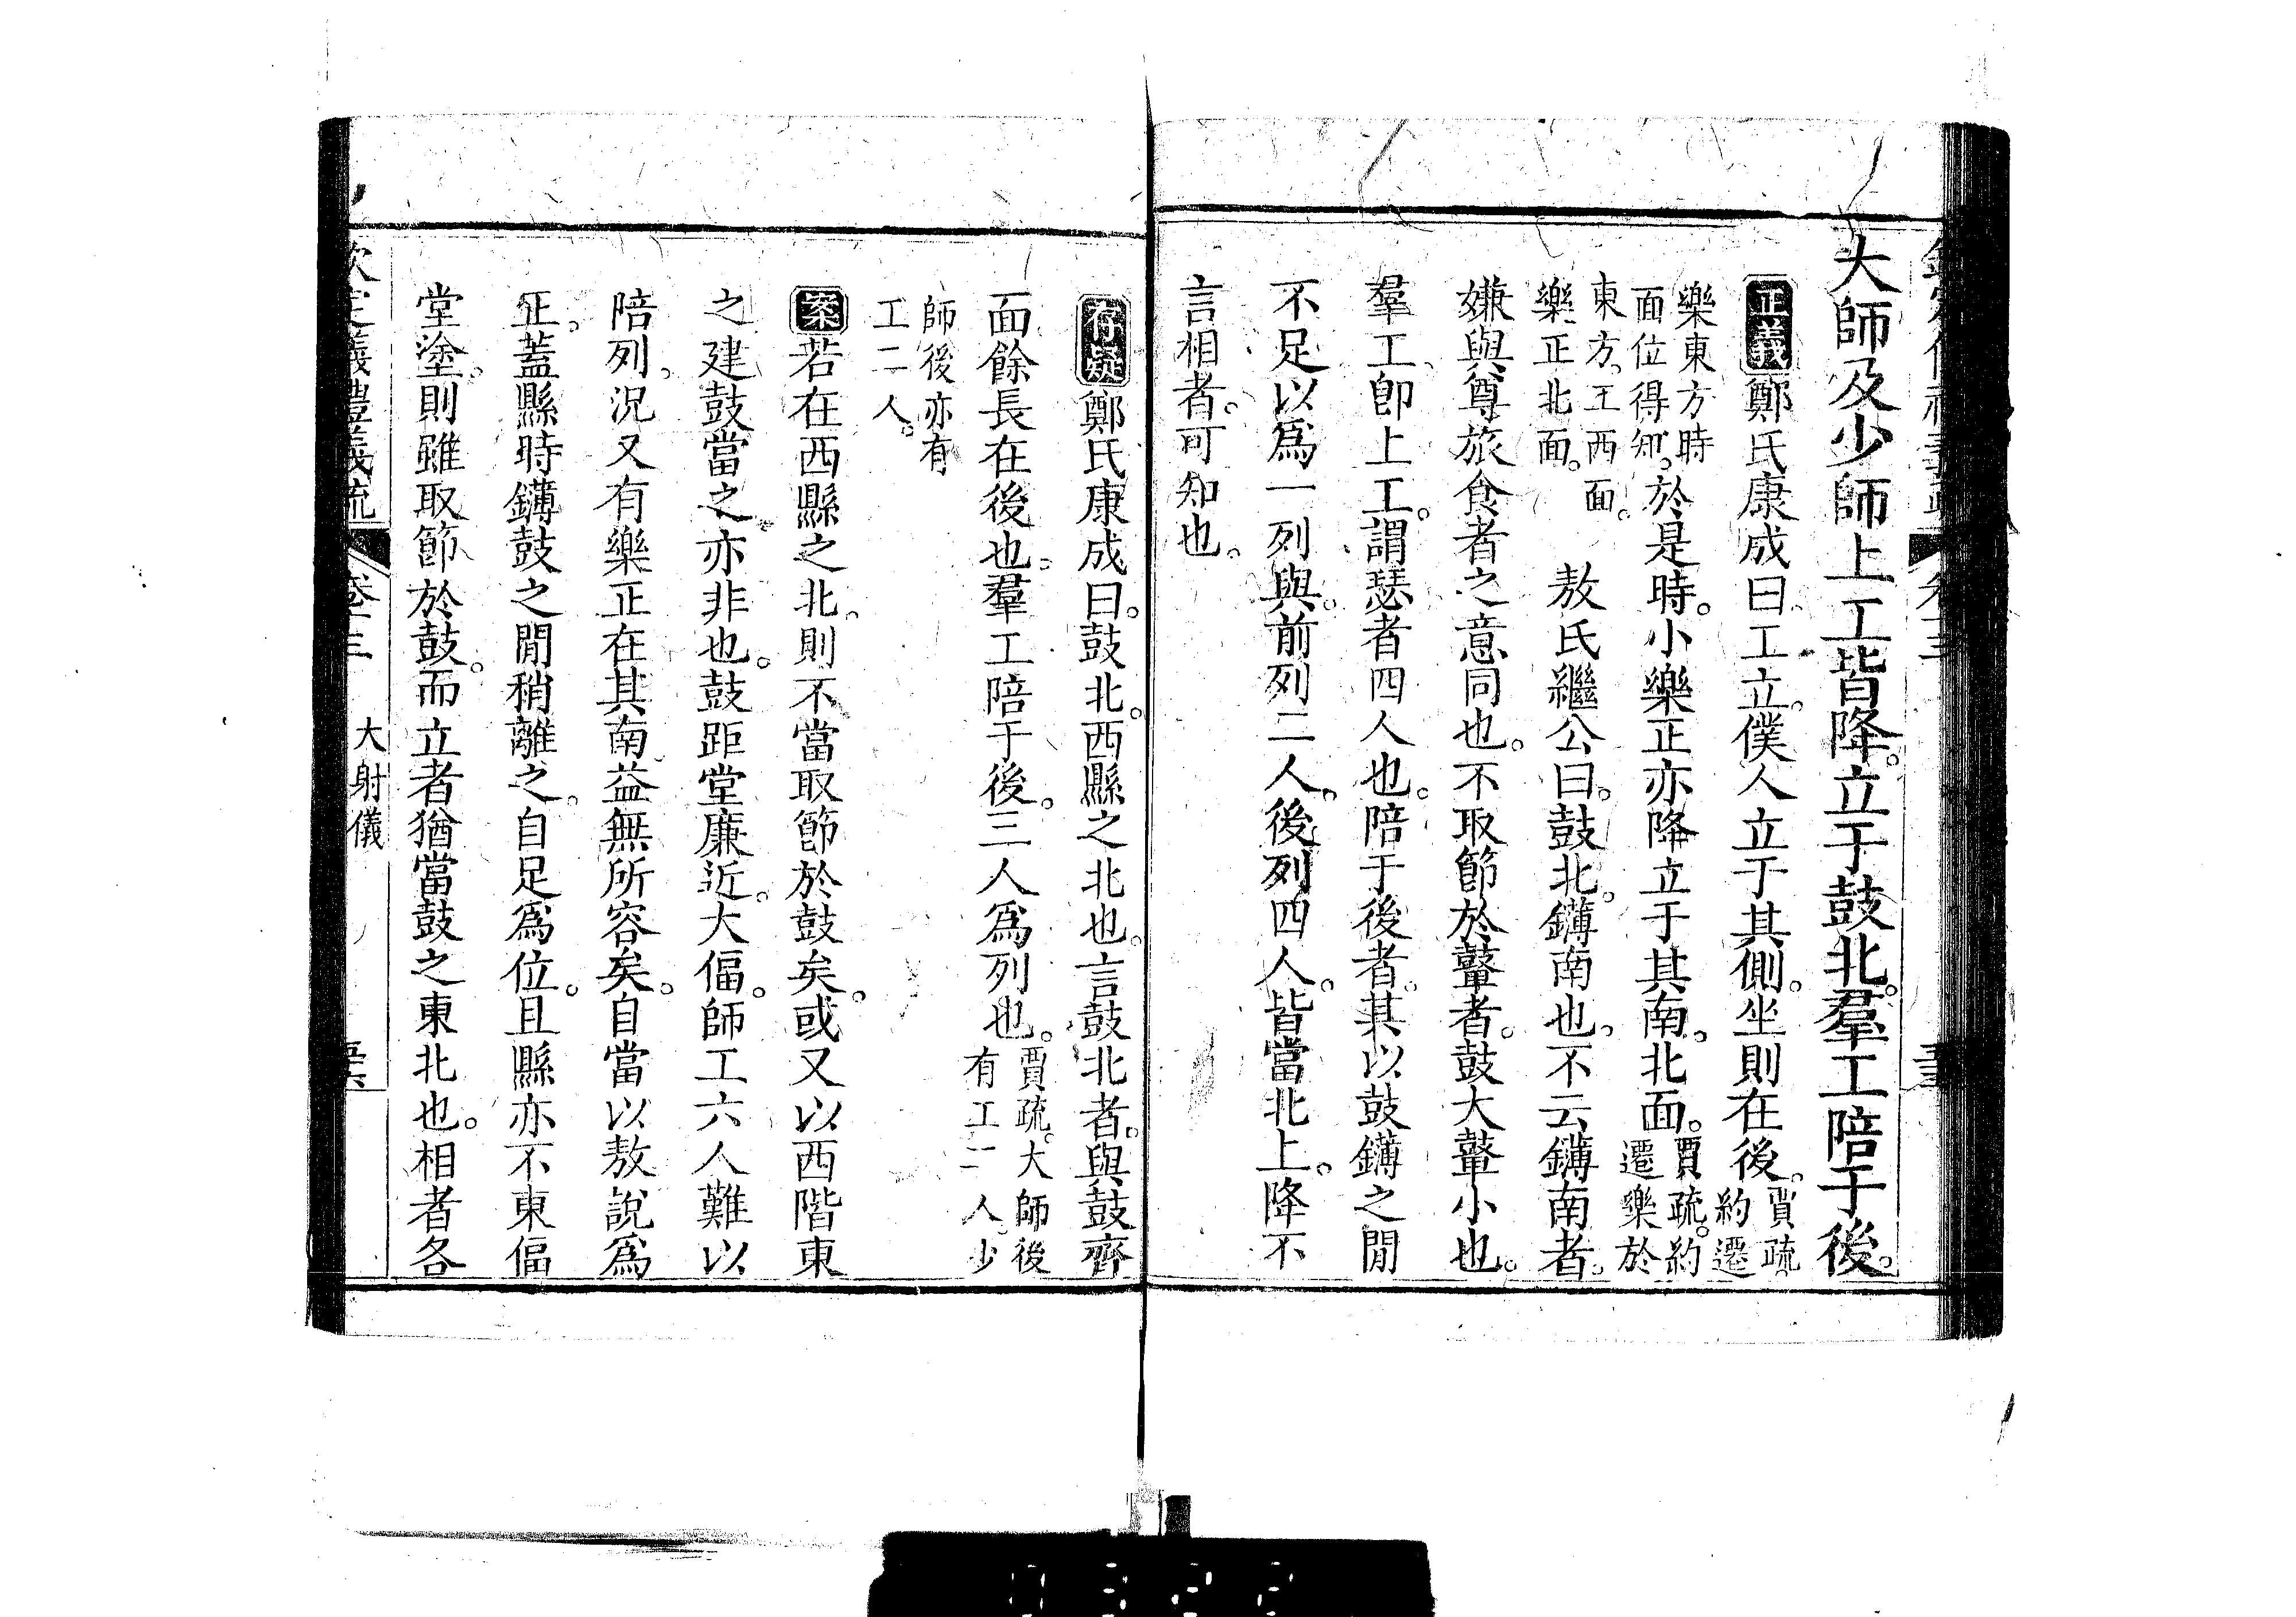 大師及少師上工皆降。立于鼓北。羣工陪于後。
正義鄭氏康成曰。工立。僕人立于其側。坐則在後。賈疏。約遷
樂東方時面位得知。於是時。小樂正亦降立于其南。北面。賈疏。約遷樂於
東方。工西面。樂正北面。 敖氏繼公曰。鼓北。鑮南也。不云鑮南者。
嫌與尊旅食者之意同也。不取節於鼙者。鼓大鼙小也。
羣工。卽上工。謂瑟者四人也。陪于後者。其以鼓鑮之閒
不足以爲一列與。前列二人。後列四人。皆當北上。降不
言相者。可知也。
存疑鄭氏康成曰。鼓北。西縣之北也。言鼓北者。與鼓齊
面。餘長在後也。羣工陪于後。三人爲列也。賈疏。大師後有工二人。少
師後亦有工二人。
案若在西縣之北。則不當取節於鼓矣。或又以西階東
之建鼓當之。亦非也。鼓距堂廉近。大偪。師工六人難以
陪列。況又有樂正在其南。益無所容矣。自當以敖說爲
正。蓋縣時鑮鼓之閒稍離之。自足爲位。且縣亦不東偪
堂塗。則雖取節於鼓。而立者猶當鼓之東北也。相者各
欽定儀禮義疏 卷十三 大射儀